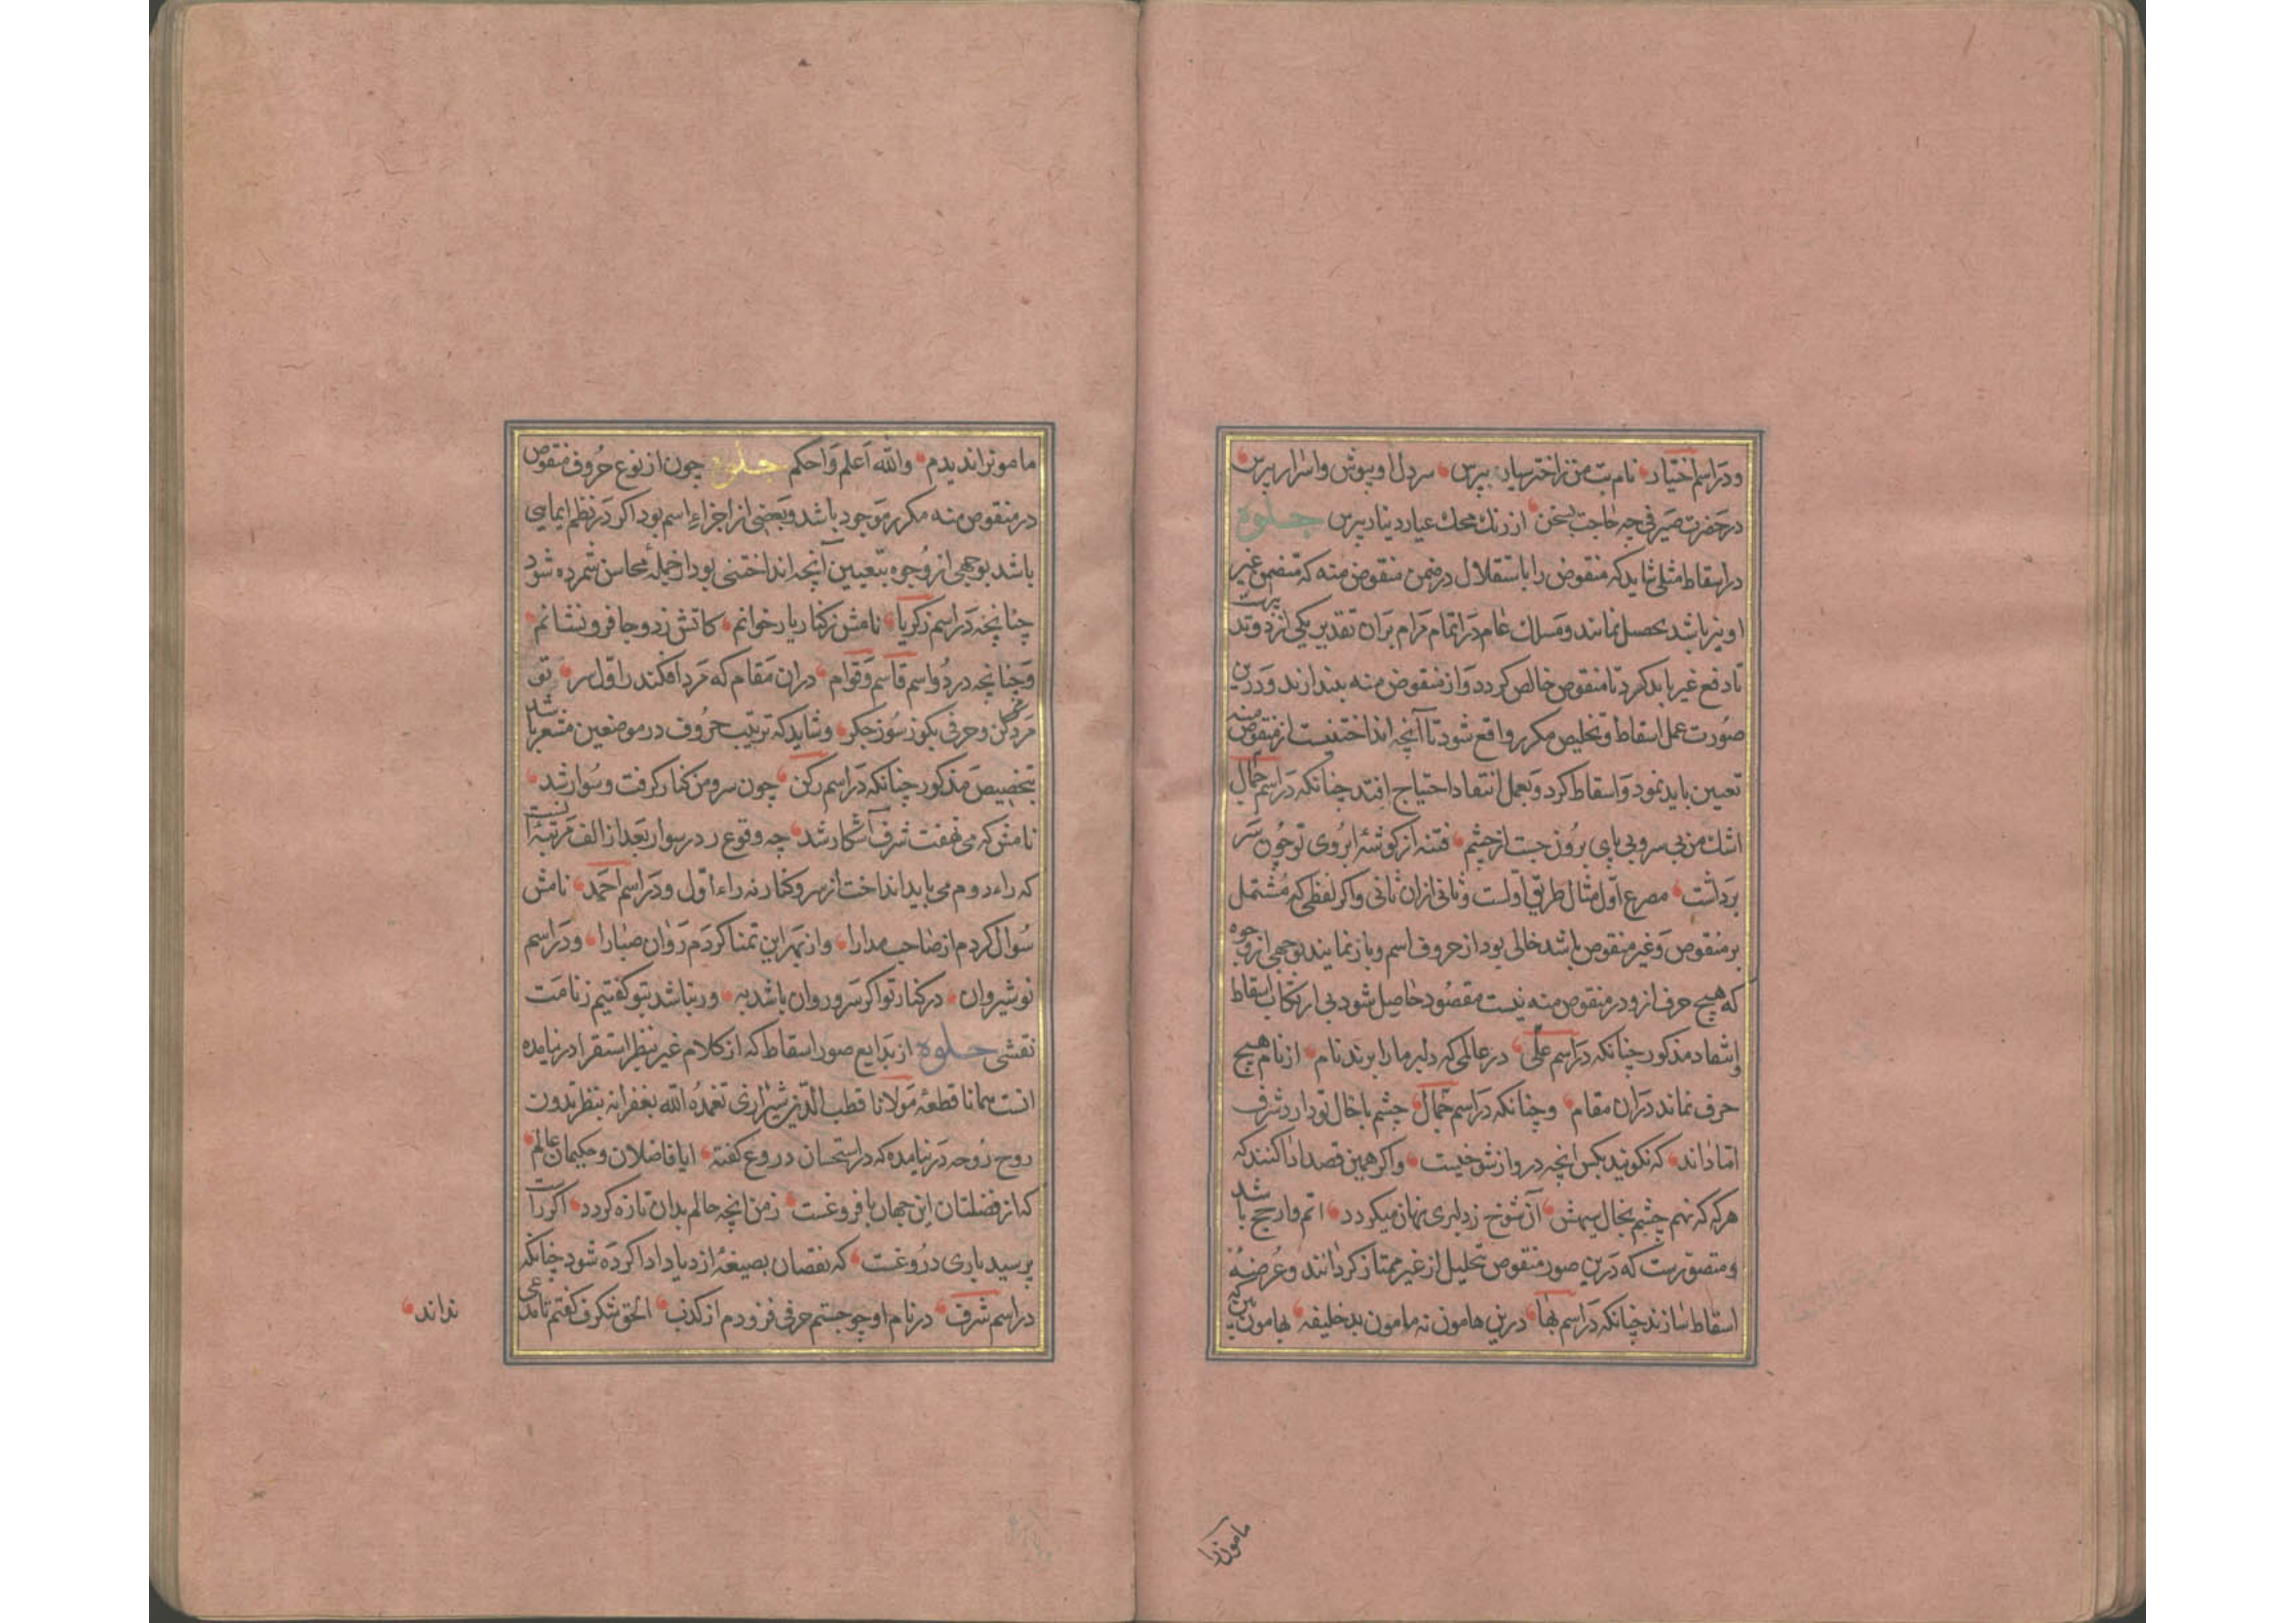 ودر اسم اختیار نام بت من ز اختر سیار بپرس سر دل او بپوش و اسرار بپرس
در حضرت صیرفی چه حاجت بسخن از رنك محك عیار دینار بپرس جلوه
در اسقاط مثلی شاید که منقوض را باستقلال در ضمن منقوض منه که متضمن غیر
او نیز باشد تحصیل نمایند و مسلك عام در اتمام مرام بران تقدیر یکی از دو تدبیرست
تا دفع غیر باید کرد تا منقوض خالص کردد و از منقوض منه بیندازند و درین
صورت عمل اسقاط و تخلیص مکرر واقع شود تا آنچه انداختنیست از منقوض منه
تعیین باید نمود و اسقاط کرد و بعمل انتقاد احتیاج افتد چنانکه در اسم جمال
اشك من بی سر و بی پای برون جست از چشم فتنه از کوشهٔ ابروی تو چون سر
برداشت مصرع اول مثال طریق اولست و ثانی ازان ثانی و اکر لفظی که مشتمل
بر منقوض و غیر منقوض باشد خالی بود از حروف اسم و باز نمایند بوجهی از وجوه
که هیچ حرف ازو در منقوض منه نیست مقصود حاصل شود بی ارتکاب اسقاط
و انتقاد مذکور چنانکه در اسم علی در عالمی که دلبر ما را برند نام از نام هیچ
حرف نماند دران مقام و چنانکه در اسم جمال چشم با خال تو دارد شرف
اما داند که نکویند بکس انچه درو از شوخیست و اکر همین قصد ادا کنند که
هر که که نهم چشم بخال سیهش آن شوخ ز دلبری نهان میکردد اتم و ارجح باشد
و متصورست که درین صور منقوض بتحلیل از غیر ممتاز کردانند و عرضهٔ
اسقاط سازند چنانکه در اسم بها درین هامون نه مامون بد خلیفه بهامون بین که
مامونرا
مامونرا ندیدم والله اعلم و احکم جلوه چون از نوع حروف منقوض
در منقوض منه مکرر موجود باشد و بعضی از اجزاء اسم بود اکر در نظم ایمایی
باشد بوجهی از وجوه بتعیین آنچه انداختنی بود از جملهٔ محاسن شمرده شود
چنانچه در اسم زکریا نامش ز کنار یار خوانم کاتش زد و جا فرو نشانم
و چنانچه در دو اسم قاسم و قوام دران مقام که مرد افکند ز اول سر تو
مرد کن و حرفی بکو ز سوز جکر و شاید که ترتیب حروف در موضعین مشعر باشد
بتخصیص مذکور چنانکه در اسم رکن چون سرو من کنار کرفت و سوار شد
نامش که می نهفت شرف آشکار شد چه وقوع ر در سوار بعد از الف مرتبهٔ آنست
که راء دوم می باید انداخت از سرو کنار نه راء اول و در اسم احمد نامش
سوال کردم از صاحب مدارا و از بهر این تمنا کردم روان صبا را و در اسم
نوشیروان در کنار تو اکر سرو روان باشد به ور نباشد بتو کفتیم ز نامت
نقشی جلوه از بدایع صور اسقاط که از کلام غیر بنظر استقرا در نیامده
انست همانا قطعهٔ مولانا قطب الدین شیرازی تغمده الله بغفرانه بنظر تدوین
روح روحه در نیامده که در استحسان دروغ کفته ایا فاضلان و حکیمان عالم
کز از فضلتان این جهان با فروغست ز من انچه حالم بدان تازه کردد اکر راست
پرسید باری دروغست که نقصان بصیغهٔ ازدیاد ادا کرده شود چنانکه
در اسم شرف در نام او چو جستم حرفی فزودم از کذب الحق شکرف کفتم تا مدعی
نداند